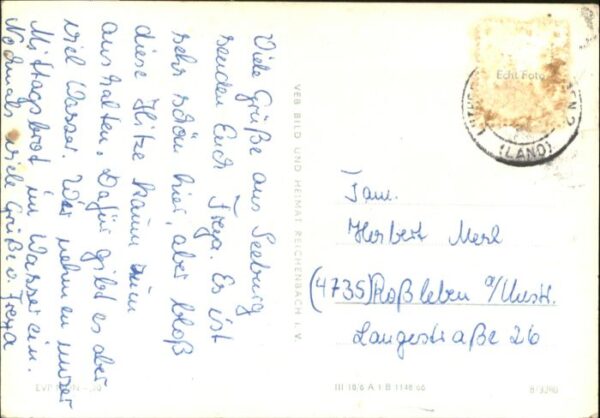 Viele Grüße aus Seeburg
senden Euch Freya. Es ist
sehr schön hier, aber bloß
diese Hitze kaum zum
aushalten. Dafür gibt es aber
viel Wasser. Wir nehmen unser
Mittagsbrot im Wasser ein.
Nochmals viele Grüße v. Freya
VEB BILD UND HEIMAT REICHENBACH I. V.
Echt Foto
(LAND)
Fam.
Herbert Merl
(4735) Roßleben a/Unstr.
Langestraße 26
III 18/6 A 1 B 1148 66